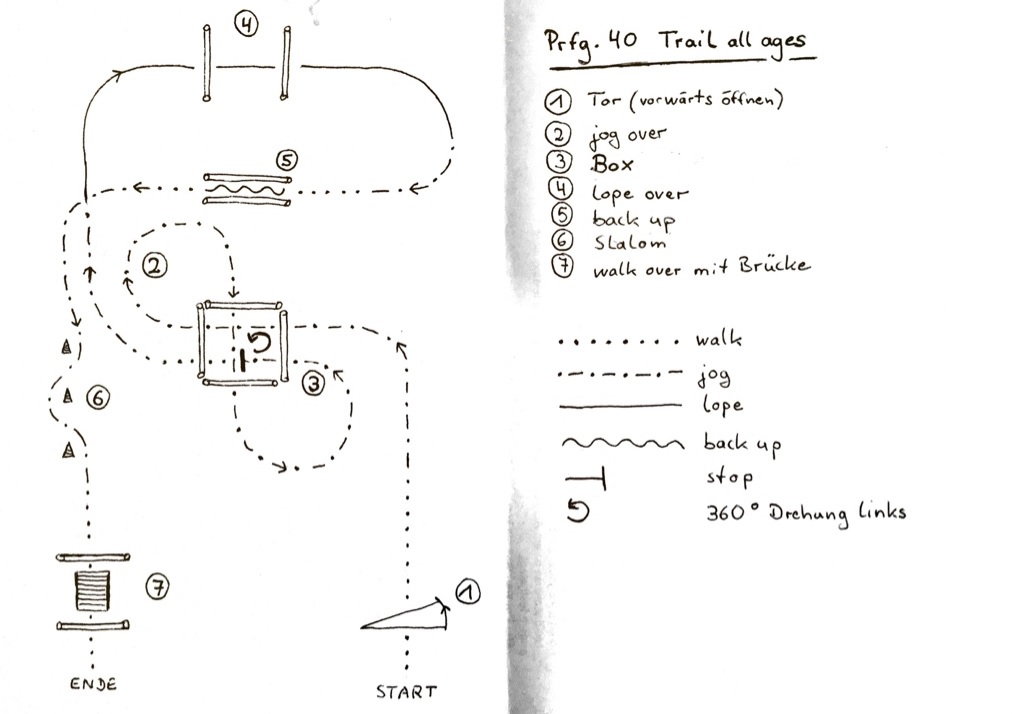 ④
⑤
②
③
⑥
⑦
①
ENDE
START
Prfg. 40 Trail all ages
① Tor (vorwärts öffnen)
② jog over
③ Box
④ lope over
⑤ back up
⑥ Slalom
⑦ walk over mit Brücke
walk
jog
lope
back up
stop
360° Drehung links